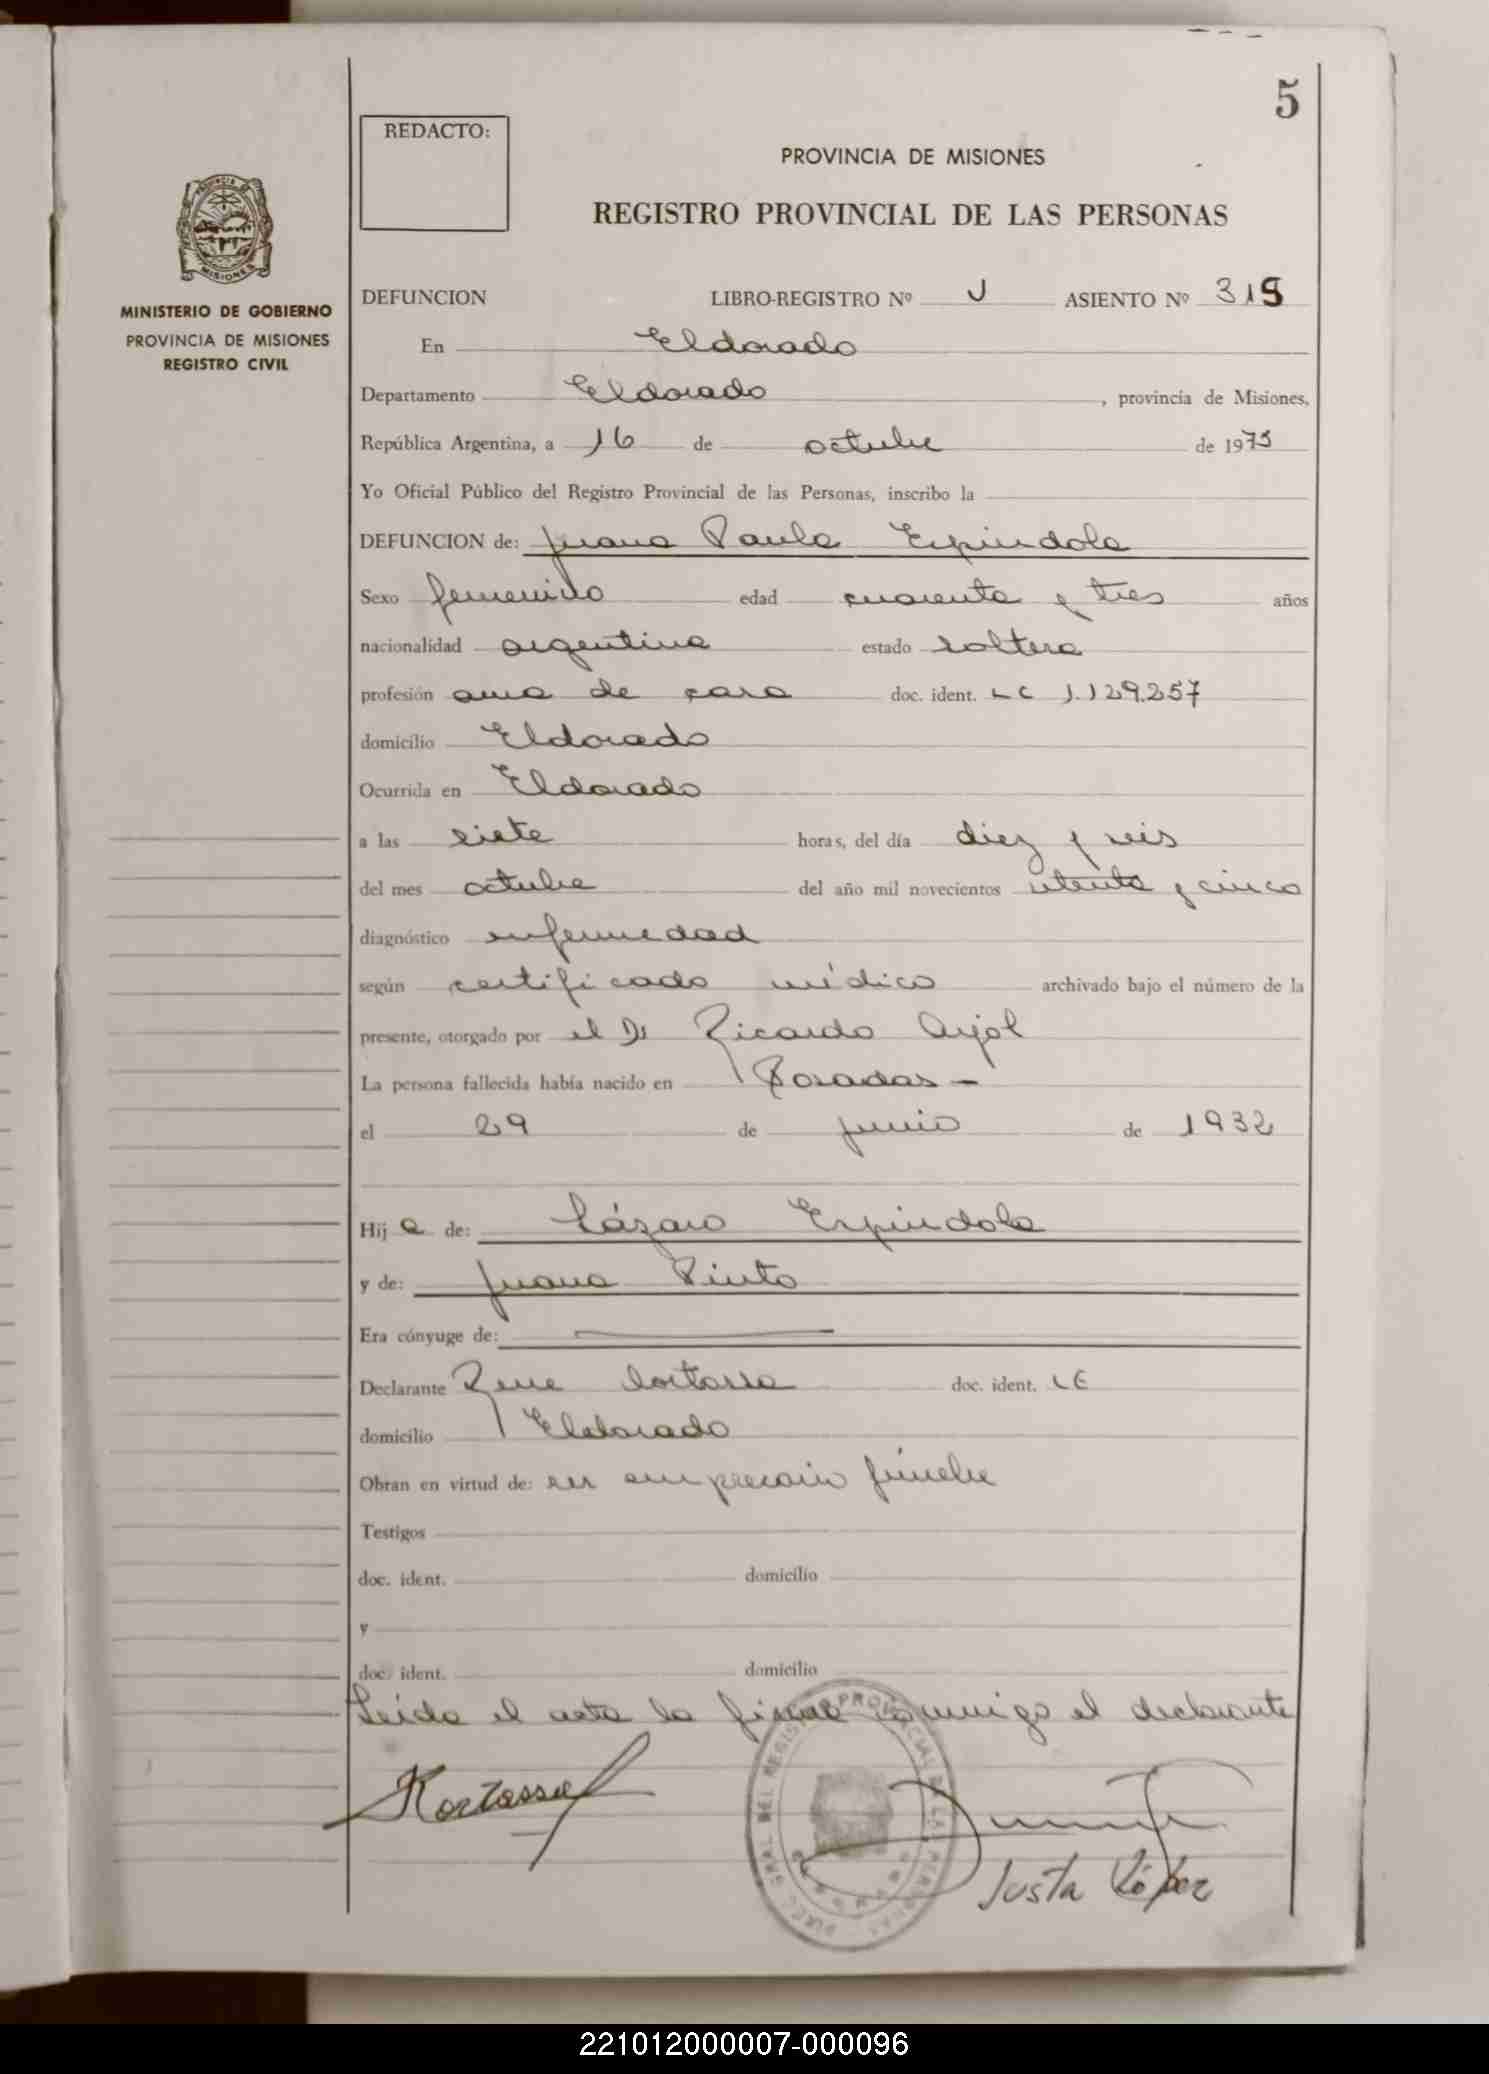 5
REDACTO:
PROVINCIA DE MISIONES
REGISTRO PROVINCIAL DE LAS PERSONAS
MISIONES
MINISTERIO DE GOBIERNO
PROVINCIA DE MISIONES
REGISTRO CIVIL
DEFUNCION LIBRO-REGISTRO Nº J ASIENTO Nº 315
En Eldorado
Departamento Eldorado, provincia de Misiones,
República Argentina, a 16 de octubre de 1975
Yo Oficial Público del Registro Provincial de las Personas, inscribo la
DEFUNCION de: Juana Paula Espindola
Sexo femenino edad cuarenta y tres años
nacionalidad argentina estado soltera
profesión ama de casa doc. ident. LC 1.129.257
domicilio Eldorado
Ocurrida en Eldorado
a las siete horas, del día diez y seis
del mes octubre del año mil novecientos setenta y cinco
diagnóstico enfermedad
según certificado médico archivado bajo el número de la
presente, otorgado por el Dr Ricardo
La persona fallecida había nacido en Posadas -
el 29 de junio de 1932
Hija de: Lázaro Espindola
y de: Juana Pinto
Era cónyuge de:
Declarante Rene doc. ident. LE
domicilio Eldorado
Obran en virtud de: ser empresario fúnebre
Testigos
doc. ident. domicilio
y
doc. ident. domicilio
Leída el acta la firma conmigo el declarante
Justa López
221012000007-000096